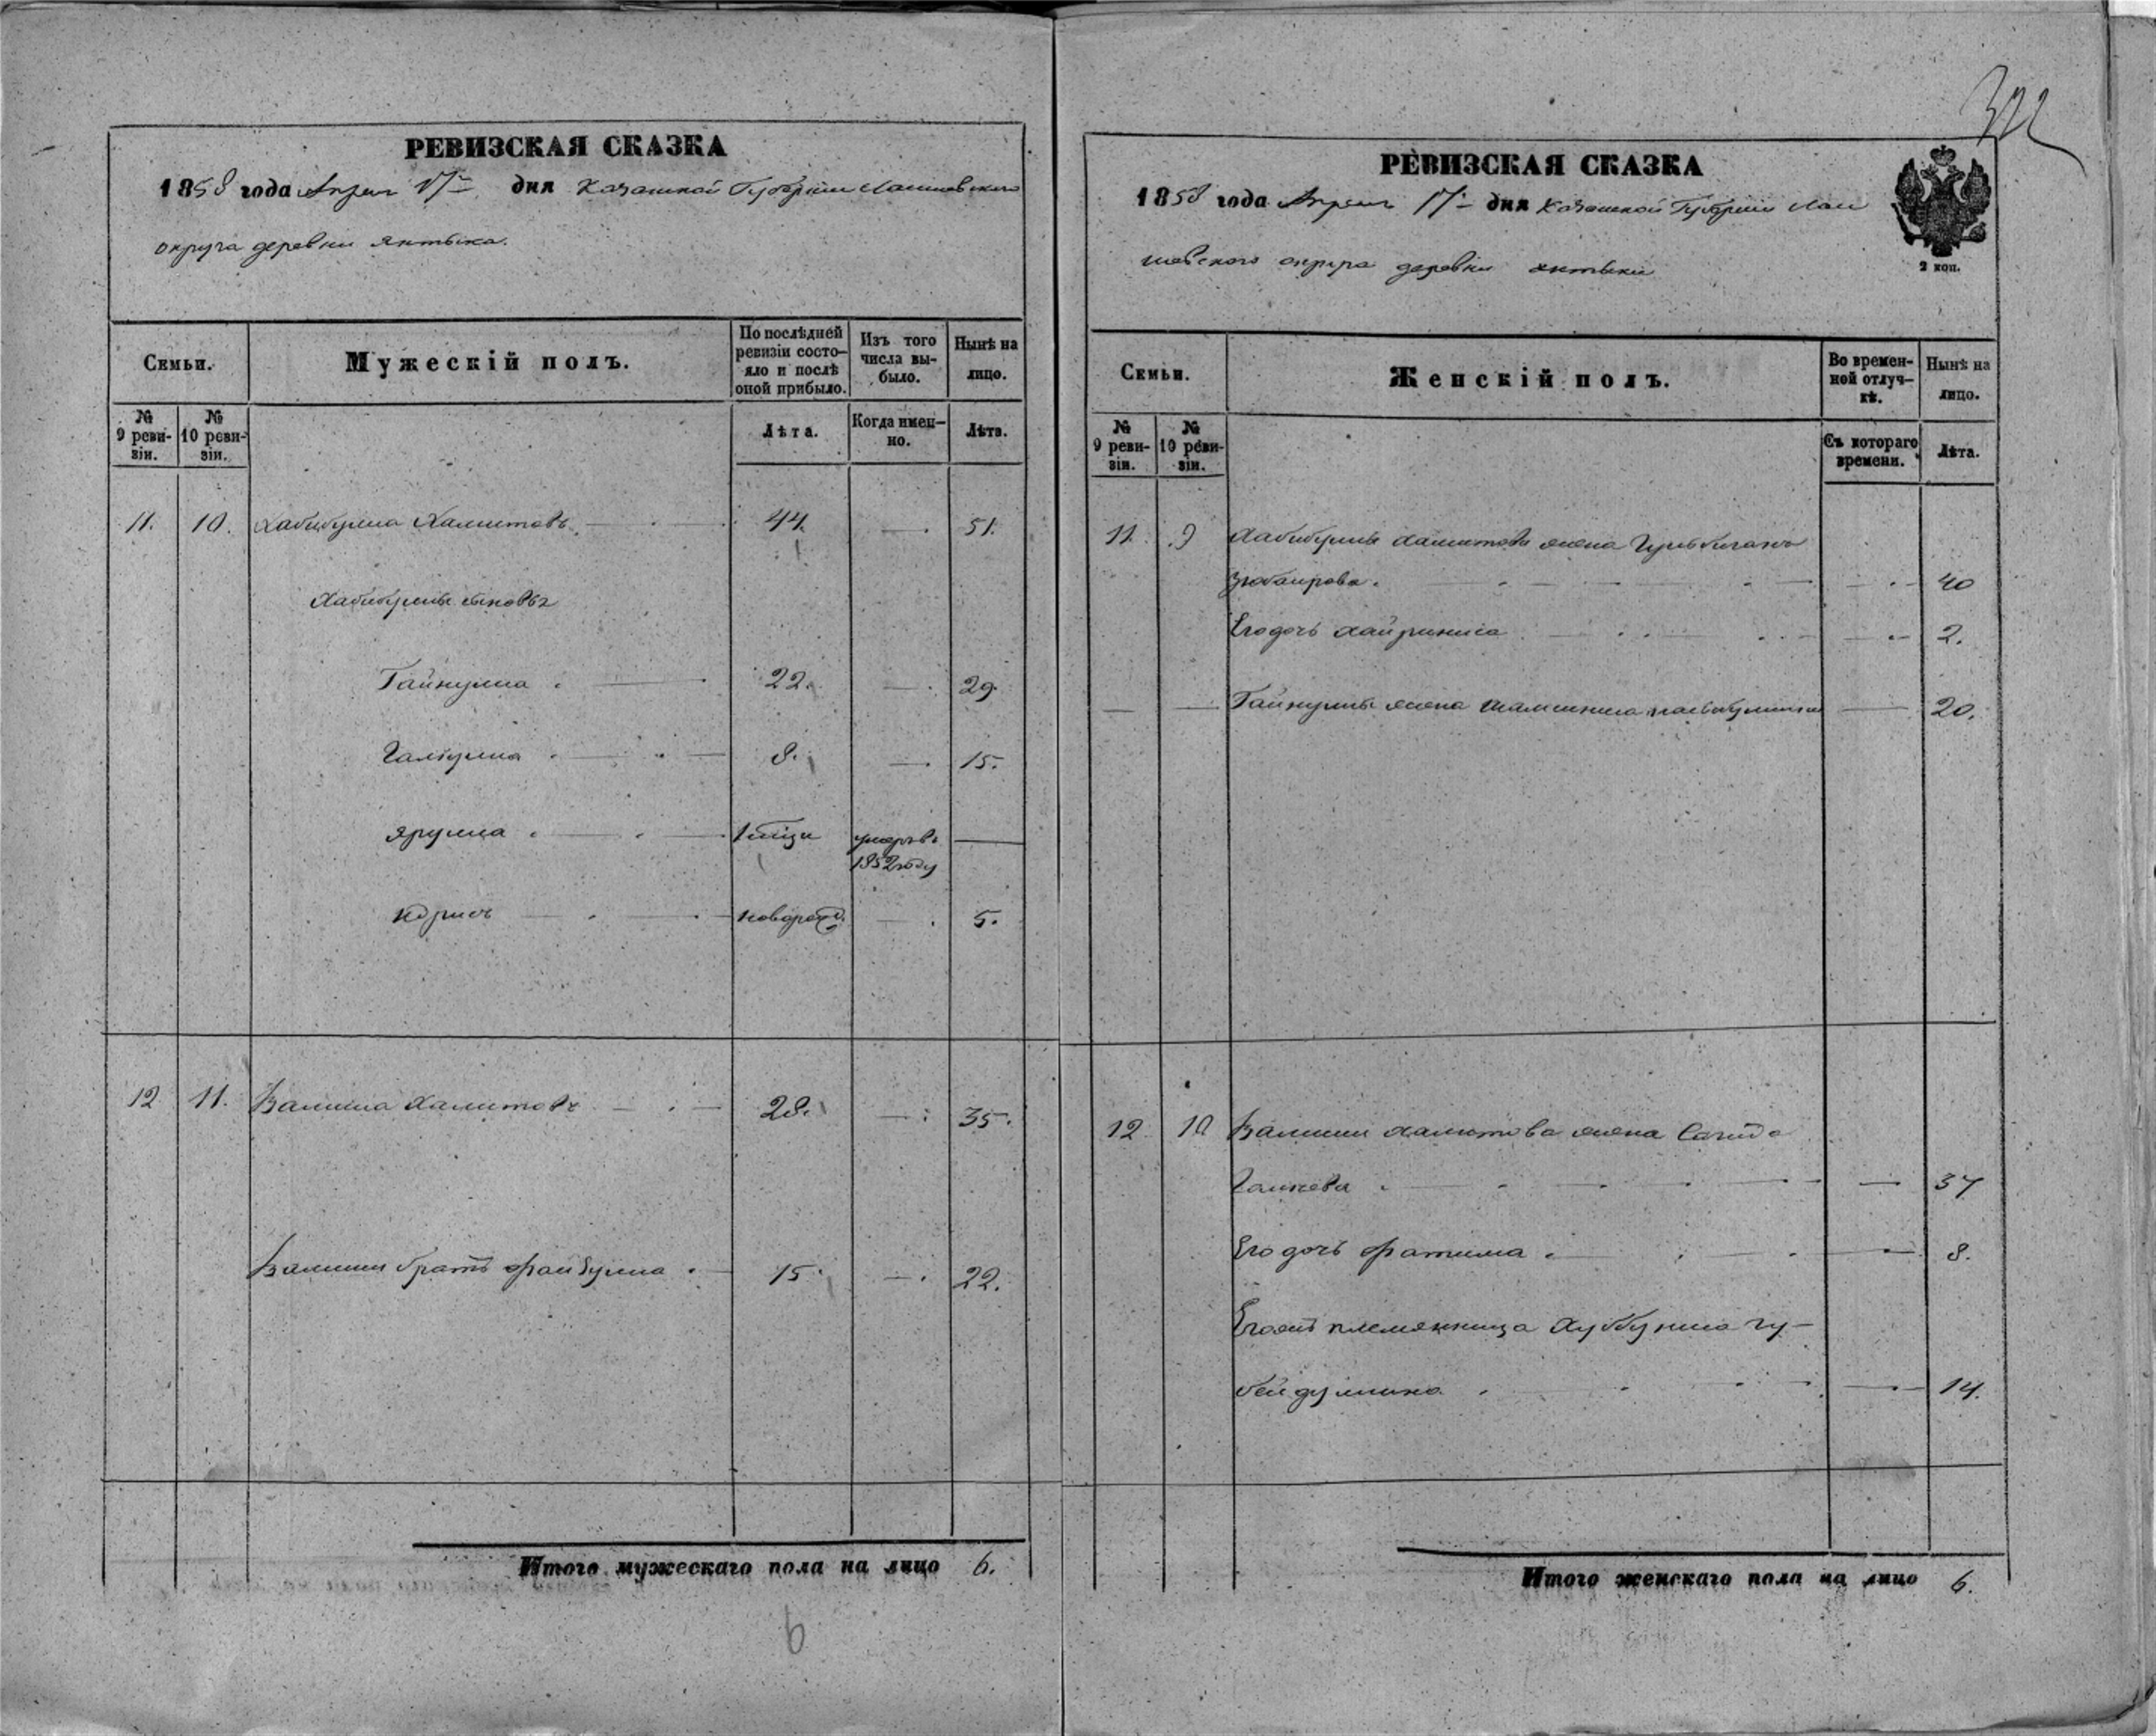 322
РЕВИЗСКАЯ СКАЗКА
1858 года Апреля 17го дня Казанской Губернии Лаишевскаго
округа деревни Янтыка.
Семьи.
Мужескій полъ.
По послѣдней ревизіи состояло и послѣ оной прибыло.
Изъ того числа выбыло.
Нынѣ на лицо.
№ 9 ревизіи.
№ 10 ревизіи.
Лѣта.
Когда именно.
Лѣта.
11. 10. Хабибулла Хамитовъ 44. — 51.
Хабибуллы сыновья
Гайнулла 22. — 29.
Галіулла 8. — 15.
Ярулла умеръ въ 1852 году —
Идрисъ новорожд. — 5.
12 11. Валилла Хамитовъ 28. — 35.
Валиллы братъ Файзулла 15. — 22.
Итого мужескаго пола на лицо 6.
9
РЕВИЗСКАЯ СКАЗКА
1858 года Апреля 17го дня Казанской Губерніи Лаи
шевскаго округа деревни Янтыки
2 коп.
Семьи.
Женскій полъ.
Во временной отлучкѣ.
Нынѣ на лицо.
№ 9 ревизіи.
№ 10 ревизіи.
Съ котораго времени.
Лѣта.
11. 9 Хабибуллы Хамитова жена
Зюбаирова. — 40
Его дочь Хайриниса — 2.
— — Гайнуллы жена Шамсиниса — 20.
12 10 Валиллы Хамитова жена Сагида
Галиева — 37
Его дочь Фатима — 8.
Его же племянница Хуббуниса гу-
бейдуллина — 14.
Итого женскаго пола на лицо 6.